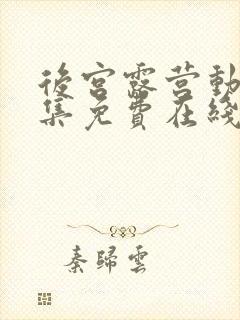 後宮露营動
集免費在綫
秦歸雲